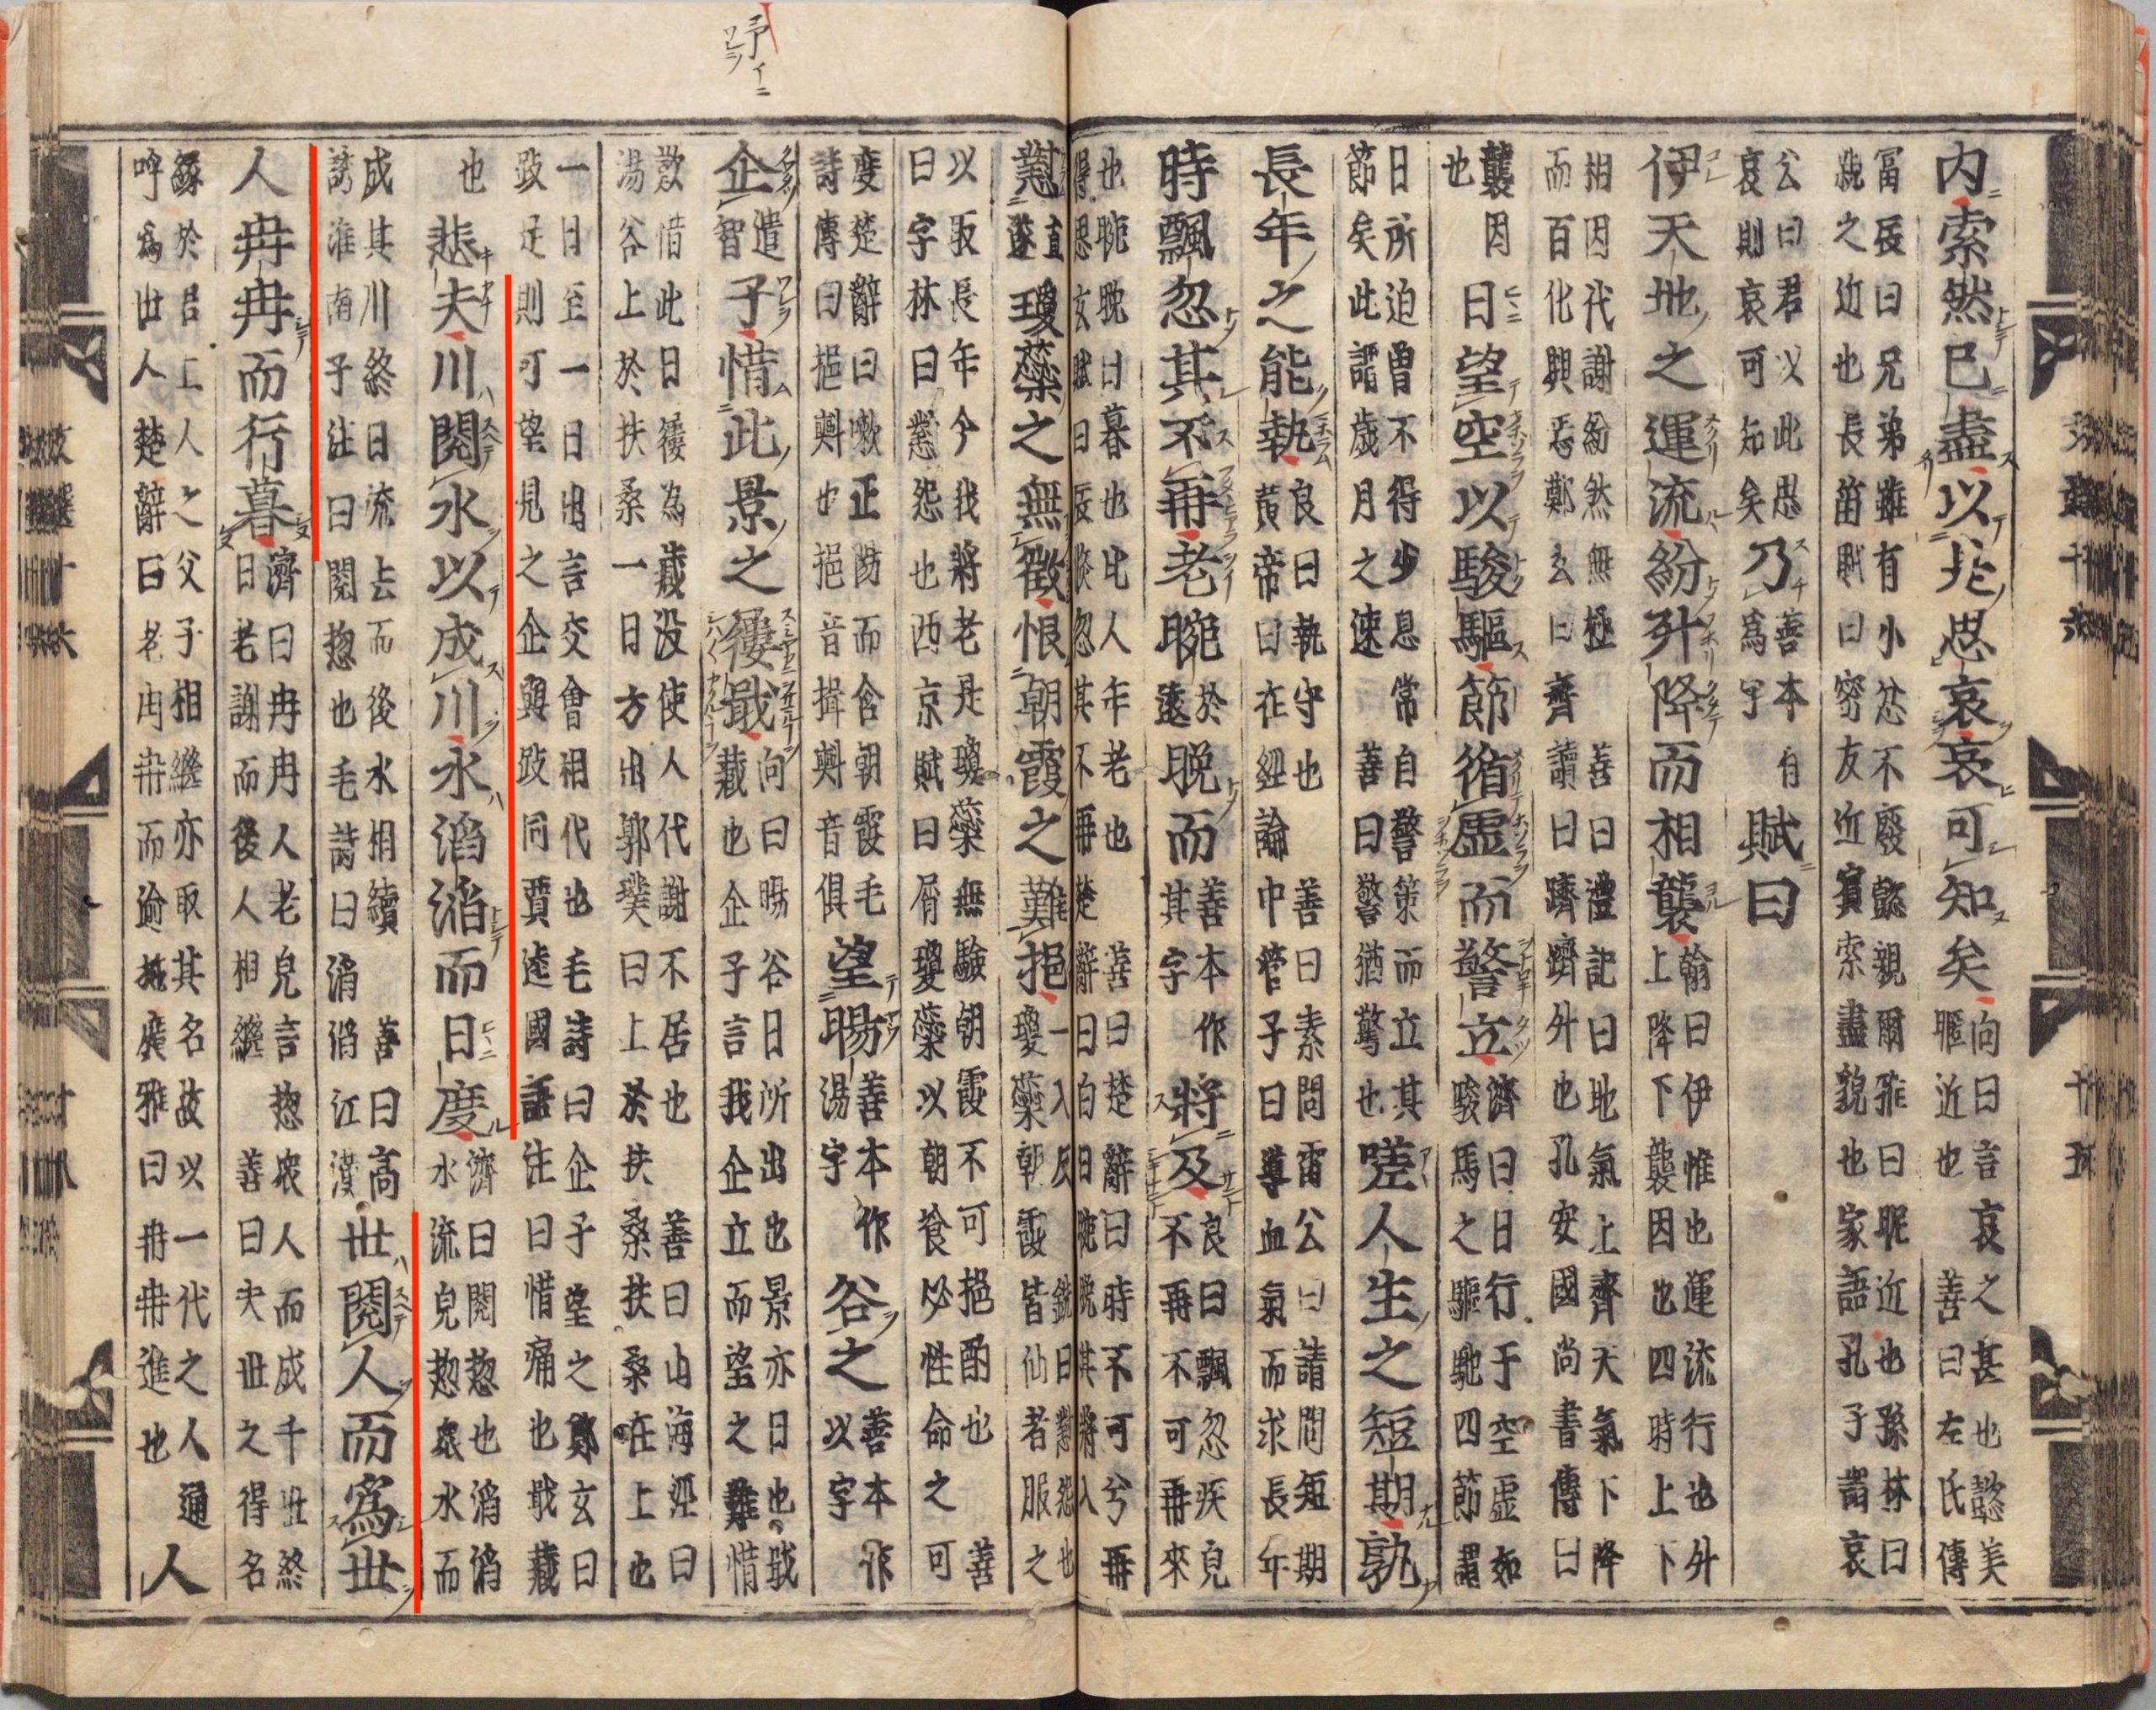 内索然已盡以兆思哀哀可知矣向曰言哀之甚也懿美暱近也善曰左氏傳
富辰曰兄弟雖有小忿不廢懿親爾雅曰昵近也孫林曰親之近近也長笛賦曰密友近賓索盡貌也家語孔子謂哀
公曰君以此思哀則哀可知矣乃善本有爲字賦曰
伊天地之運流紛升降而相襲翰曰伊惟也運流行也升上降下襲因也四時上下
相因代謝紛然無極善曰禮記曰地氣上齊天氣下降而百化興焉鄭玄曰齊讀曰躋躋升也孔安國尚書傳曰
襲因也曰望空以駿驅節循虛而警立濟曰日行于空虛如駿馬之驅馳四節謂
日所迫曾不得少息常自警策而立其節矣此謂歲月之速善曰警猶驚也嗟人生之短期孰
長年之能執良曰執守也善曰素問雷公曰請問短期黄帝曰在經論中管子曰導血氣而求長年
時飄忽其不再老晼於遠晚而善本作其字將及良曰飄忽疾皃不再不可再來
也晼晚日暮也比人年老也善曰楚辭曰時不可兮再得思玄賦曰辰倏忽其不再楚辭曰白日晼晚其將入
予イニ
懟直遂瓊蘂之無徵恨朝霞之難挹一入反銑曰懟怨也瓊蘂朝霞皆仙者服之
以取長年今我將老是瓊蘂無驗朝霞不可挹酌也善曰字林曰懟怨也西京賦曰屑瓊蘂以朝飡必性命之可
度楚辭曰漱正陽而含朝霞毛詩傳曰挹㪺也挹音揖㪺音俱望暘善本作湯字谷之善本作以字
企遣智子惜此景之屢戢向曰暘谷日所出也景亦日也戢藏也企子言我企立而望之難惜
歎惜此日屢為藏没使人代謝不居也善曰山海經曰湯谷上於扶桑一日方出郭璞曰上於扶桑扶桑在上也
一日至一日出言交會相代也毛詩曰企子望之鄭玄曰跂足則可望見之企與跂同賈逵國語注曰惜痛也戢藏
也悲夫川閱水以成川水滔滔而日度濟曰閱惣也滔滔水流皃惣衆水而
成其川終日流去而後水相續善曰高誘淮南子注曰閱惣也毛詩曰滔滔江漢世閱人而為世
人冉冉而行暮濟曰冉冉人老皃言惣衆人而成千世終日老謝而後人相繼善曰夫世之得名
緜於君上人之父子相繼亦取其名故以一代之人通呼為世人楚辭曰老冉冉而逾施廣雅曰冉冉進也人